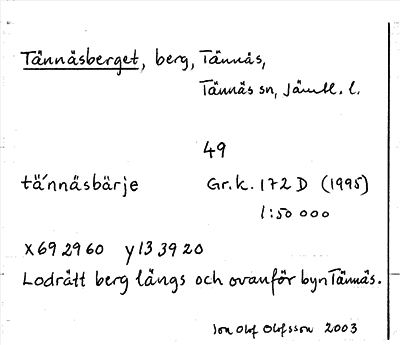 Tännäsberget, berg, Tännäs,
Tännäs sn, Jämtl. l.
49
tä´nnäsbärje Gr.k. 172 D (1995)
1:50 000
X 69 29 60 y 13 39 20
Lodrätt berg längs och ovanför byn Tännäs.
Jon Olof Olofsson 2003